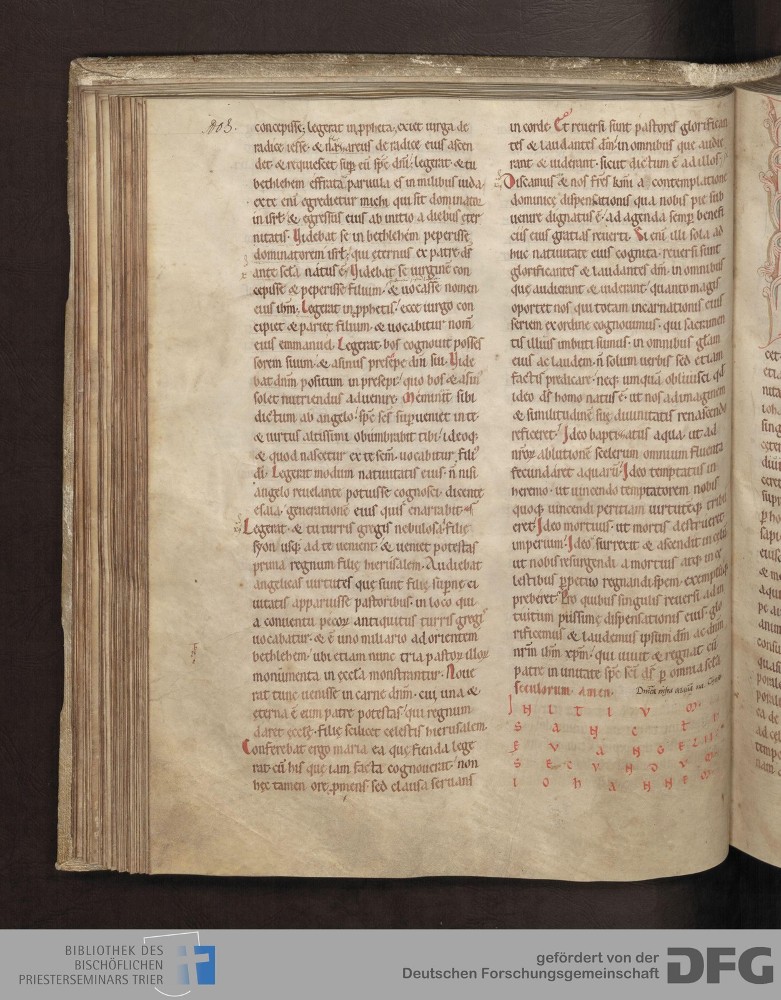 103.
concepisse; legerat in ꝓpheta, exiet uirga de
radice iesse· & nazareus de radice eius ascen
det· & requiescet suꝑ eũ spc̃ dñi; legerat· & tu
bethlehem effrata, paruula es in milibus iuda,
ex te eni egredietur michi, qui sit dominator
in isrł· & egressus eius ab initio, a diebus eter
nitatis· Uidebat se in bethlehẽm peperisse
dominatorem isrł, qui eternus ex patre dс̃
ante sc̃la natus ẽ· Uidebat se uirginẽ con
cepisse & peperisse filium· & uocasse nomen
eius ihm̃· Legerat in ꝓphetis, ecce uirgo con
cipiet & pariet filium· & uocabitur nom̃
eius emmanuel· Legerat· bos cognouit posses
sorem suum· & asinus presepe dñi sui· Uide
bat dñm positum in presepi, quo bos & asin᷒
solet nutriendus aduenire· Meminit sibi
dictum ab angelo· spc̃ sc̃s suꝑueniet in te·
& uirtus altissimi obumbrabit tibi, ideoq;
& quod nascetur ex te sc̃m· uocabitur fili᷒
di· Legerat modum natiuitatis eius· ñ nisi
angelo reuelante potuisse cognosci· dicente
esaia· generationẽ eius quis enarrabit·
Legerat· & tu turris gregis nebulosa, filię
syon· usq; ad te uenient· & ueniet potestas
prima regnum filię hierusalem· Audiebat
angelicas uirtutes que sunt filię suꝑnę ci
uitatis apparuisse pastoribus· in loco qui
a conuentu pecoꝝ antiquitus turris gregis
uocabatur· & ẽ uno miliario ad orientem
bethlehem, ubi etiam nunc tria pastoꝝ illoꝝ
monumenta in ecc̃la monstrantur· Noue
rat tunc uenisse in carne dñm· cui, una &
ęterna ẽ cum patre potestas, qui regnum
daret ecclę· filię scilicet celestis hierusalem·
Conferebat ergo maria ea quę fienda lege
rat· cũ his que iam facta cognouerat· non
hęc tamen ore ꝓmens· sed clausa seruans
in corde· Et reuersi sunt pastores glorifican
tes & laudantes dm̃· in omnibus que audie
rant & uiderant· sicut dictum ẽ ad illos;
Discamus & nos frẽs kmĩ a contemplatione
dominicę dispensationis qua nobis pie sub
uenire dignatus ẽ· ad agenda semꝑ benefi
ciis eius gratias reuerti· Si eni illi sola ad
huc natiuitate eius cognita· reuersi sunt
glorificantes & laudantes dm̃· in omnibus
quę audierant & uiderant, quanto magis
oportet nos qui totam incarnationis eius
seriem ex ordine cognouimus· qui sacramen
tis illius imbuti sumus· in omnibus glãm
eius ac laudem· ñ solum uerbis sed etiam
factis predicare· neq; umquã obliuisci qd̃
ideo dс̃ homo natus ẽ· ut nos ad imaginem
& similitudinẽ suę diuinitatis renascendo
reficeret· Ideo baptizatus aqua, ut ad
nr̃oꝝ ablutionẽ scelerum omnium fluenta
fecundaret aquarũ· Ideo temptatus in
heremo· ut uincendo temptatorem nobis
quoq; uincendi peritiam uirtutẽq; tribu
eret· Ideo mortuus· ut mortis destrueret
imperium· Ideo surrexit & ascendit in celũ
ut nobis resurgendi a mortuis atq; in ce
lestibus ꝑpetuo regnandi spem· exemplũq;
preberet· Pro quibus singulis reuersi ad in
tuitum piissimę dispensationis eius· glo
rificemus & laudemus ipsum dm̃ ac dñm
nr̃m ihm̃ xp̃m· qui uiuit & regnat cũ
patre in unitate spc̃ sc̃i dс̃ ꝑ omnia sc̃la
seculorum· amen·
INITIVM
SANCTI
EVANGELII
SECVNDVM
IOHANNEM
BIBLIOTHEK DES
BISCHÖFLICHEN
PRIESTERSEMINARS TRIER
gefördert von der
Deutschen Forschungsgemeinschaft
DFG